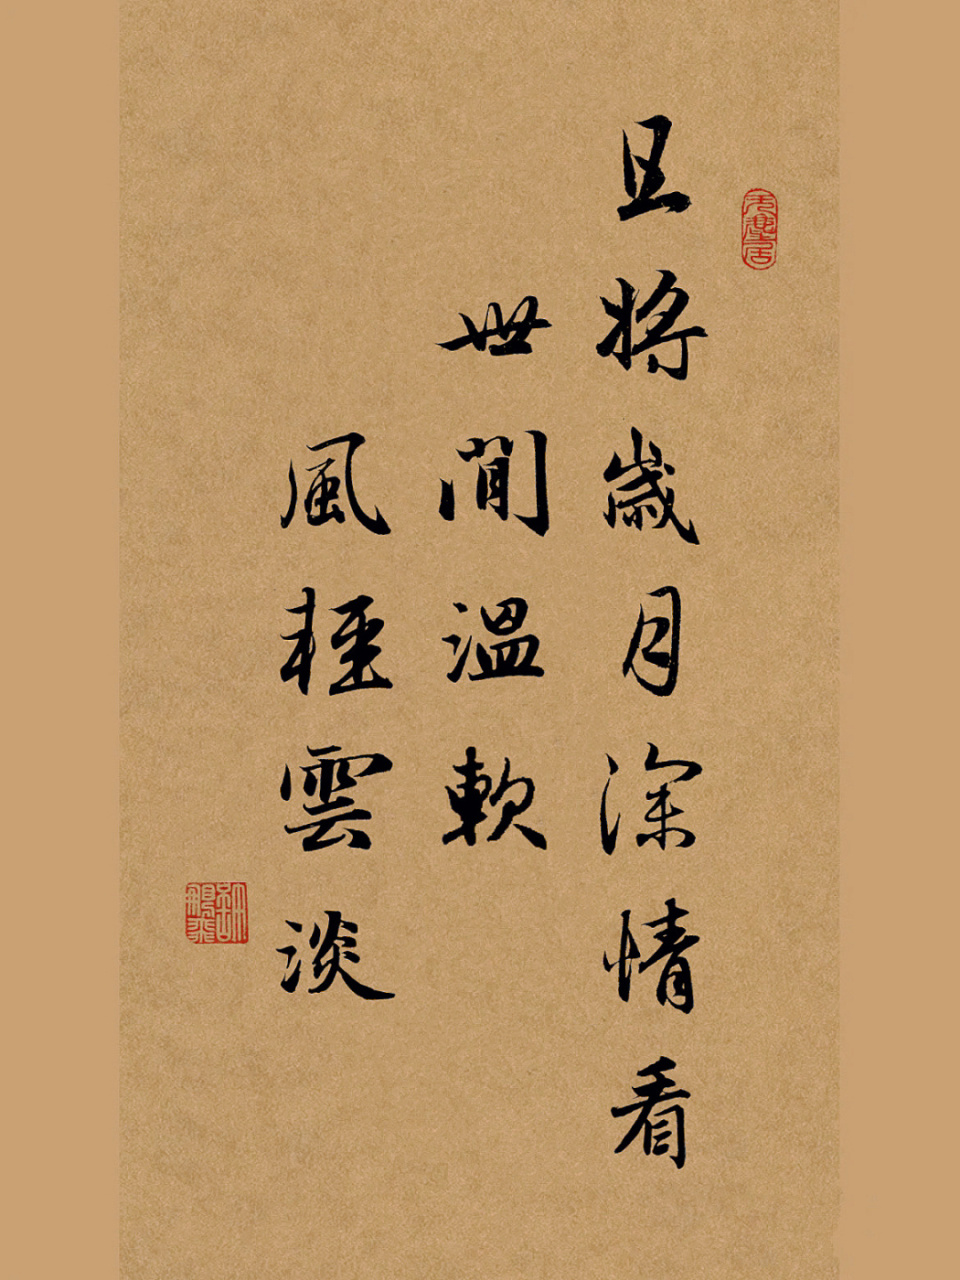 且將歲月深情看
世間溫軟
風輕雲淡